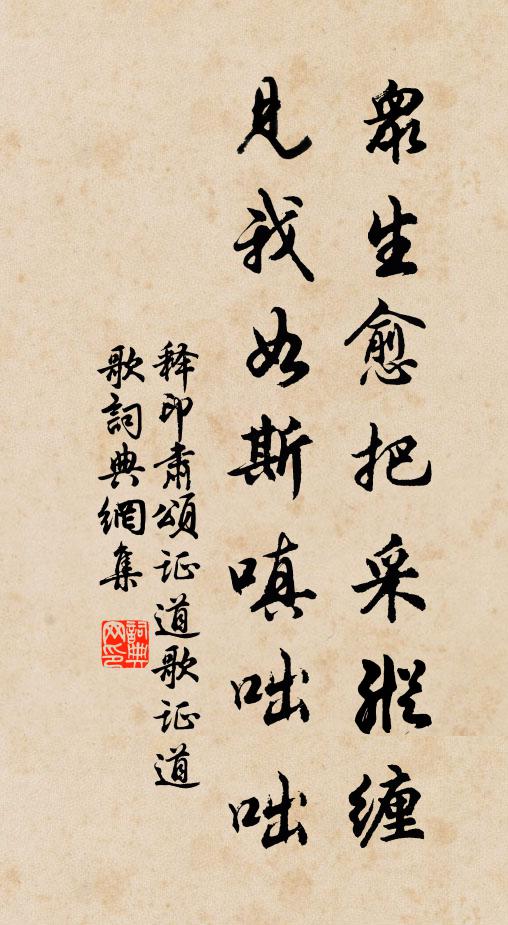 眾生愈把采纵缠
見我如斯嗔咄咄
释印肃頌证道歌证道
歌詞典網集
詞典网印